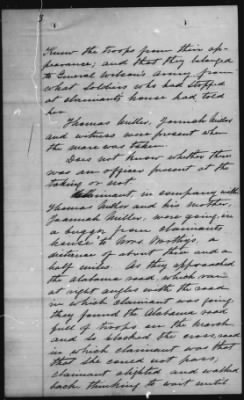 3
Knew the troops from their ap-
pearance; and that they belonged
to General Wilson's Army from
what soldiers who had stopped
at claimants house had told
her
Thomas Miller, Joannah Miller
and witness were present when
the mare was taken.
Does not know whether there
was an officer present at the
taking or not
Claimant, in company with
Thomas Miller and his mother,
Joannah Miller, were going in
a buggy from claimants
house to Mrs a
distance of about three and a
half miles. As they approached
the Alabama road, which ran
at right angles with the road
in which claimant was going
they found the Alabama road
full of troops on the march
and so blocked the cross road
in which claimant was that
that she could not pass,
claimant alighted and walked
back thinking to wait until